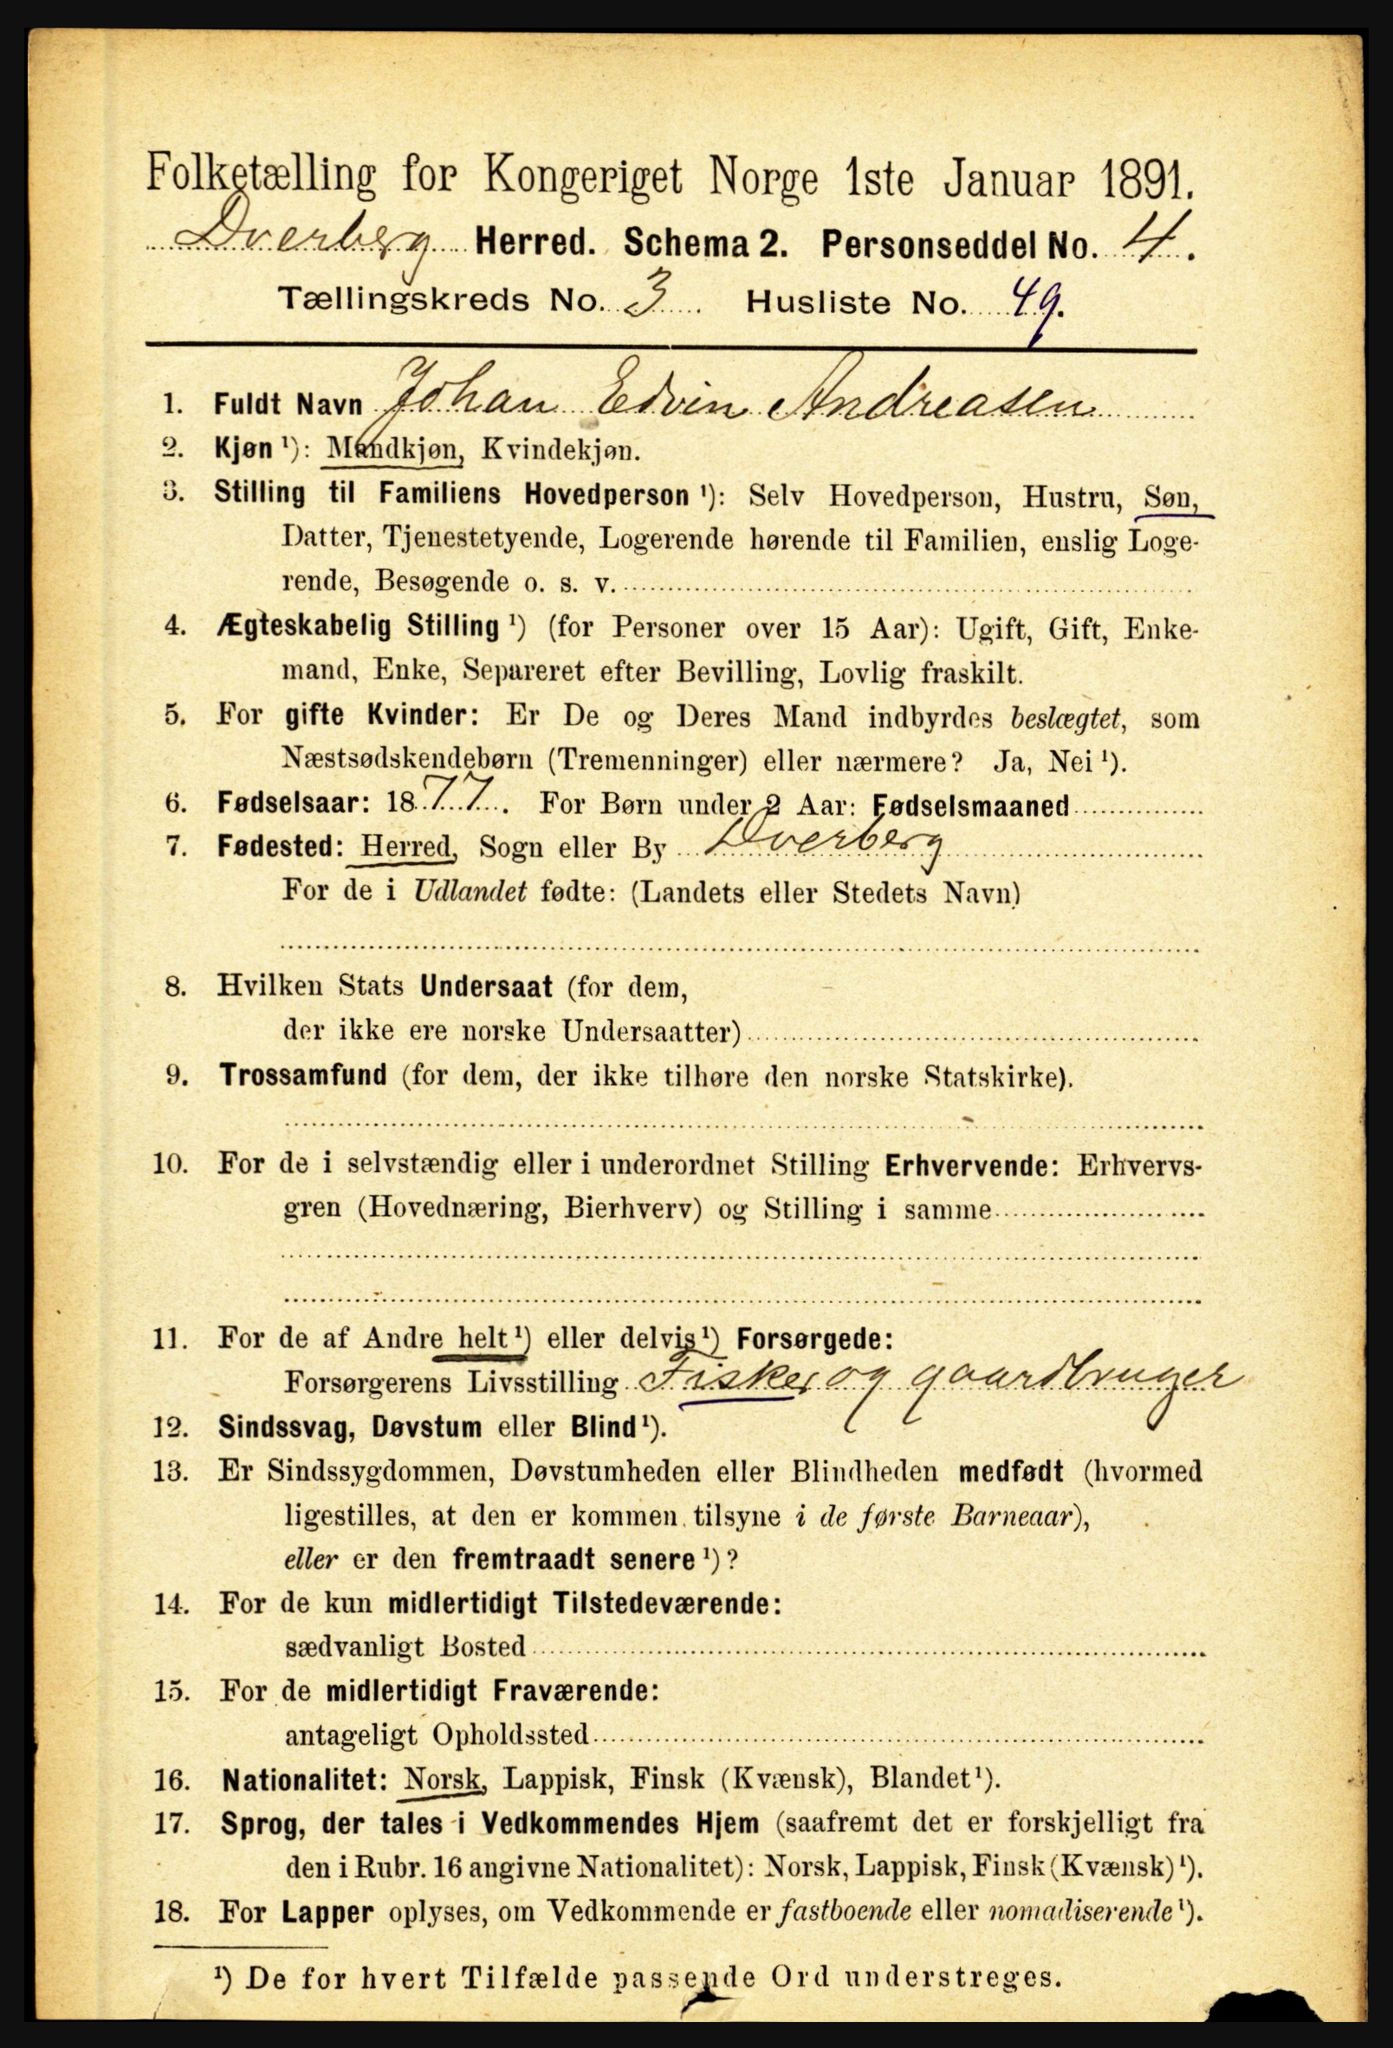 Folketælling for Kongeriget Norge 1ste Januar 1891.
Dverberg Herred. Schema 2. Personseddel No. 4.
Tællingskreds No. 3. Husliste No. 49.
1. Fuldt Navn Johan Edvin Andreasen
2. Kjøn ¹): Mandkjøn, Kvindekjøn.
3. Stilling til Familiens Hovedperson ¹): Selv Hovedperson, Hustru, Søn,
Datter, Tjenestetyende, Logerende hørende til Familien, enslig Loge-
rende, Besøgende o. s. v.
4. Ægteskabelig Stilling ¹) (for Personer over 15 Aar): Ugift, Gift, Enke-
mand, Enke, Separeret efter Bevilling, Lovlig fraskilt.
5. For gifte Kvinder: Er De og Deres Mand indbyrdes beslægtet, som
Næstsødskendebørn (Tremenninger) eller nærmere? Ja, Nei ¹).
6. Fødselsaar: 1877. For Børn under 2 Aar: Fødselsmaaned
7. Fødested: Herred, Sogn eller By Dverberg
For de i Udlandet fødte: (Landets eller Stedets Navn)
8. Hvilken Stats Undersaat (for dem,
der ikke ere norske Undersaatter)
9. Trossamfund (for dem, der ikke tilhøre den norske Statskirke).
10. For de i selvstændig eller i underordnet Stilling Erhvervende: Erhvervs-
gren (Hovednæring, Bierhverv) og Stilling i samme
11. For de af Andre helt ¹) eller delvis ¹) Forsørgede:
Forsørgerens Livsstilling Fisker og gaardbruger
12. Sindssvag, Døvstum eller Blind ¹).
13. Er Sindssygdommen, Døvstumheden eller Blindheden medfødt (hvormed
ligestilles, at den er kommen tilsyne i de første Barneaar),
eller er den fremtraadt senere ¹)?
14. For de kun midlertidigt Tilstedeværende:
sædvanligt Bosted
15. For de midlertidigt Fraværende:
antageligt Opholdssted
16. Nationalitet: Norsk, Lappisk, Finsk (Kvænsk), Blandet ¹).
17. Sprog, der tales i Vedkommendes Hjem (saafremt det er forskjelligt fra
den i Rubr. 16 angivne Nationalitet): Norsk, Lappisk, Finsk (Kvænsk) ¹).
18. For Lapper oplyses, om Vedkommende er fastboende eller nomadiserende ¹).
¹) De for hvert Tilfælde passende Ord understreges.